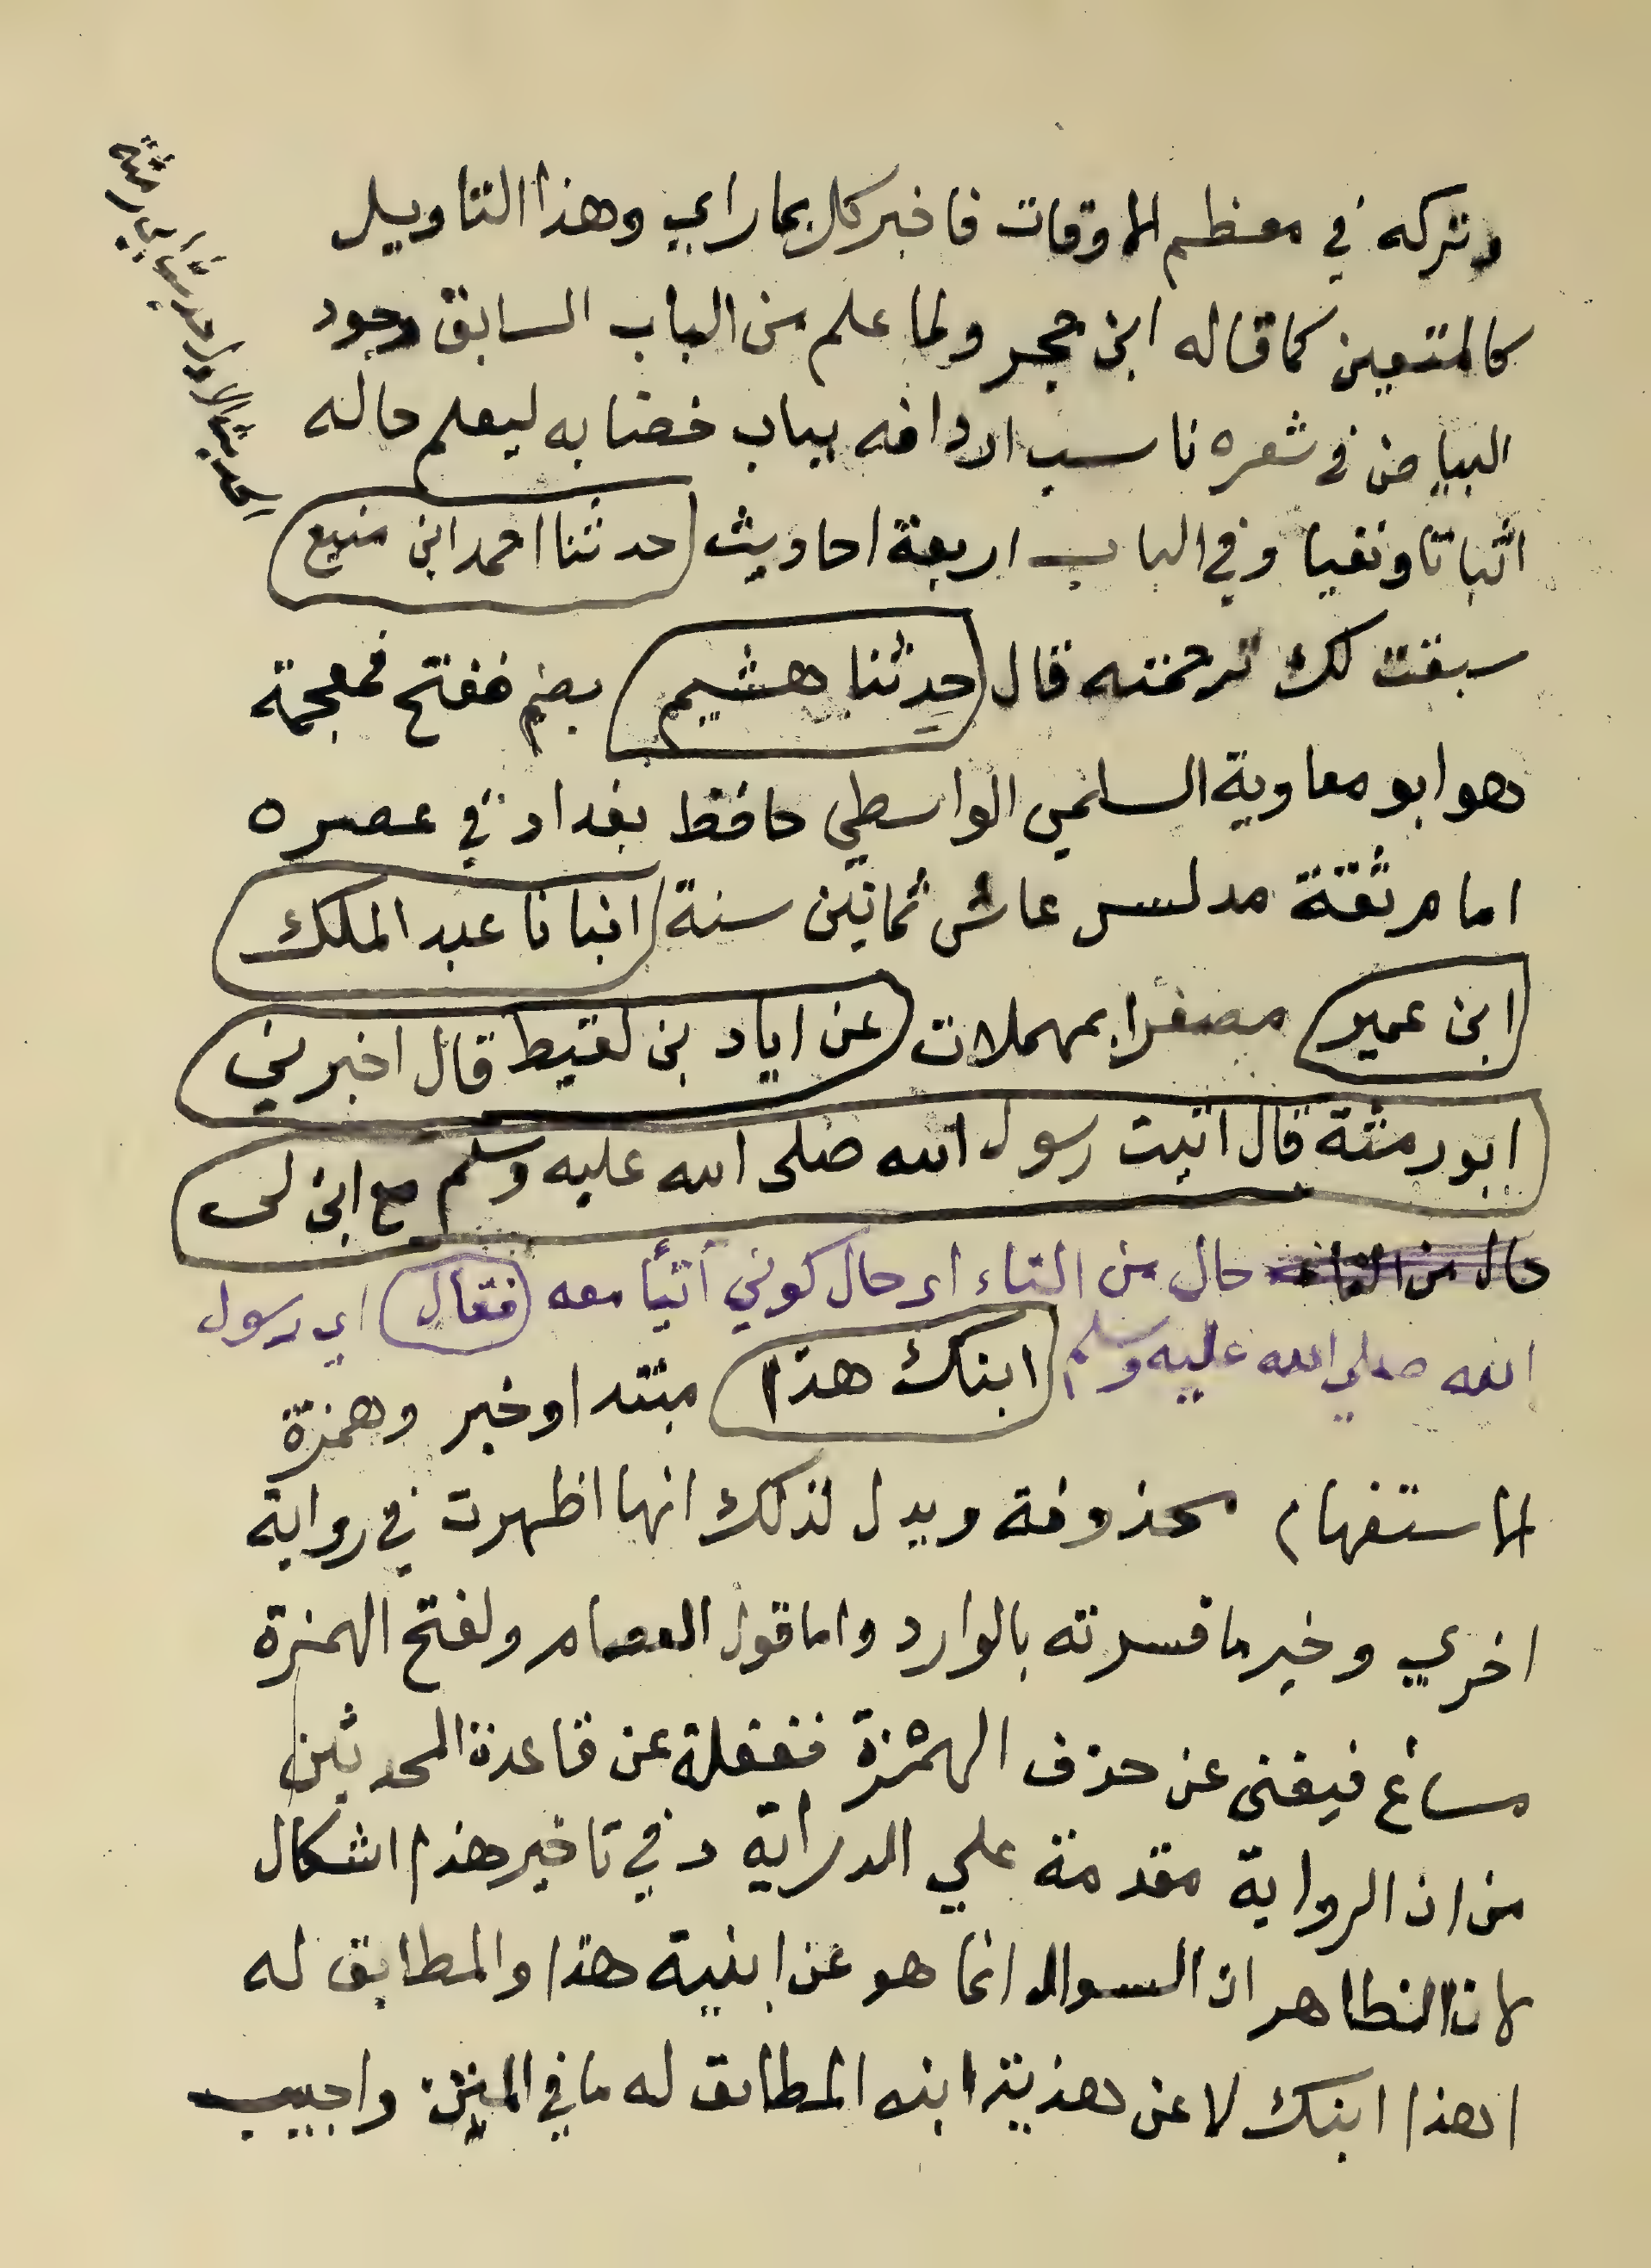 وتركه في معظم الاوقات فاخبر كل بما راي وهذا التاويل
كالمتعين كما قاله ابن حجر ولما علم من الباب السابق وجود
البياض في شعره ناسب اردافه بباب خضابه ليعلم حاله
اثباتا ونفيا وفي الباب اربعة احاديث حدثنا احمد ابن منيع
سبقت لك ترجمته قال حدثنا هشيم بضم ففتح فمعجمة
هو ابو معاوية السلمي الواسطي حافظ بغداد في عصره
امام ثقة مدلس عاش ثمانين سنة انبانا عبد الملك
ابن عمير مصغرا بمهملات عن اياد بن لقيط قال اخبرني
ابو رمثة قال اتيت رسول الله صلى الله عليه وسلم مع ابن لى
حال من التاء حال من التاء اي حال كوني آتيًا معه فقال اي رسول
الله صلي الله عليه وسلم ابنك هذا مبتدا وخبر وهمزة
الاستفهام محذوفة ويدل لذلك انها اظهرت في رواية
اخري وخير ما فسرته بالوارد واما قول العصام ولفتح الهمزة
مساغ فيغنى عن حذف الهمزة فغفلة عن قاعدة المحدثين
من ان الرواية مقدمة علي الدراية و في تاخير هذا اشكال
لان الظاهر ان السوال انما هو عن ابنية هذا والمطابق له
اهذا ابنك لا عن هذية ابنه المطابق له ما في المتن واجيب
الحديث الاول حديث ابي رمثة